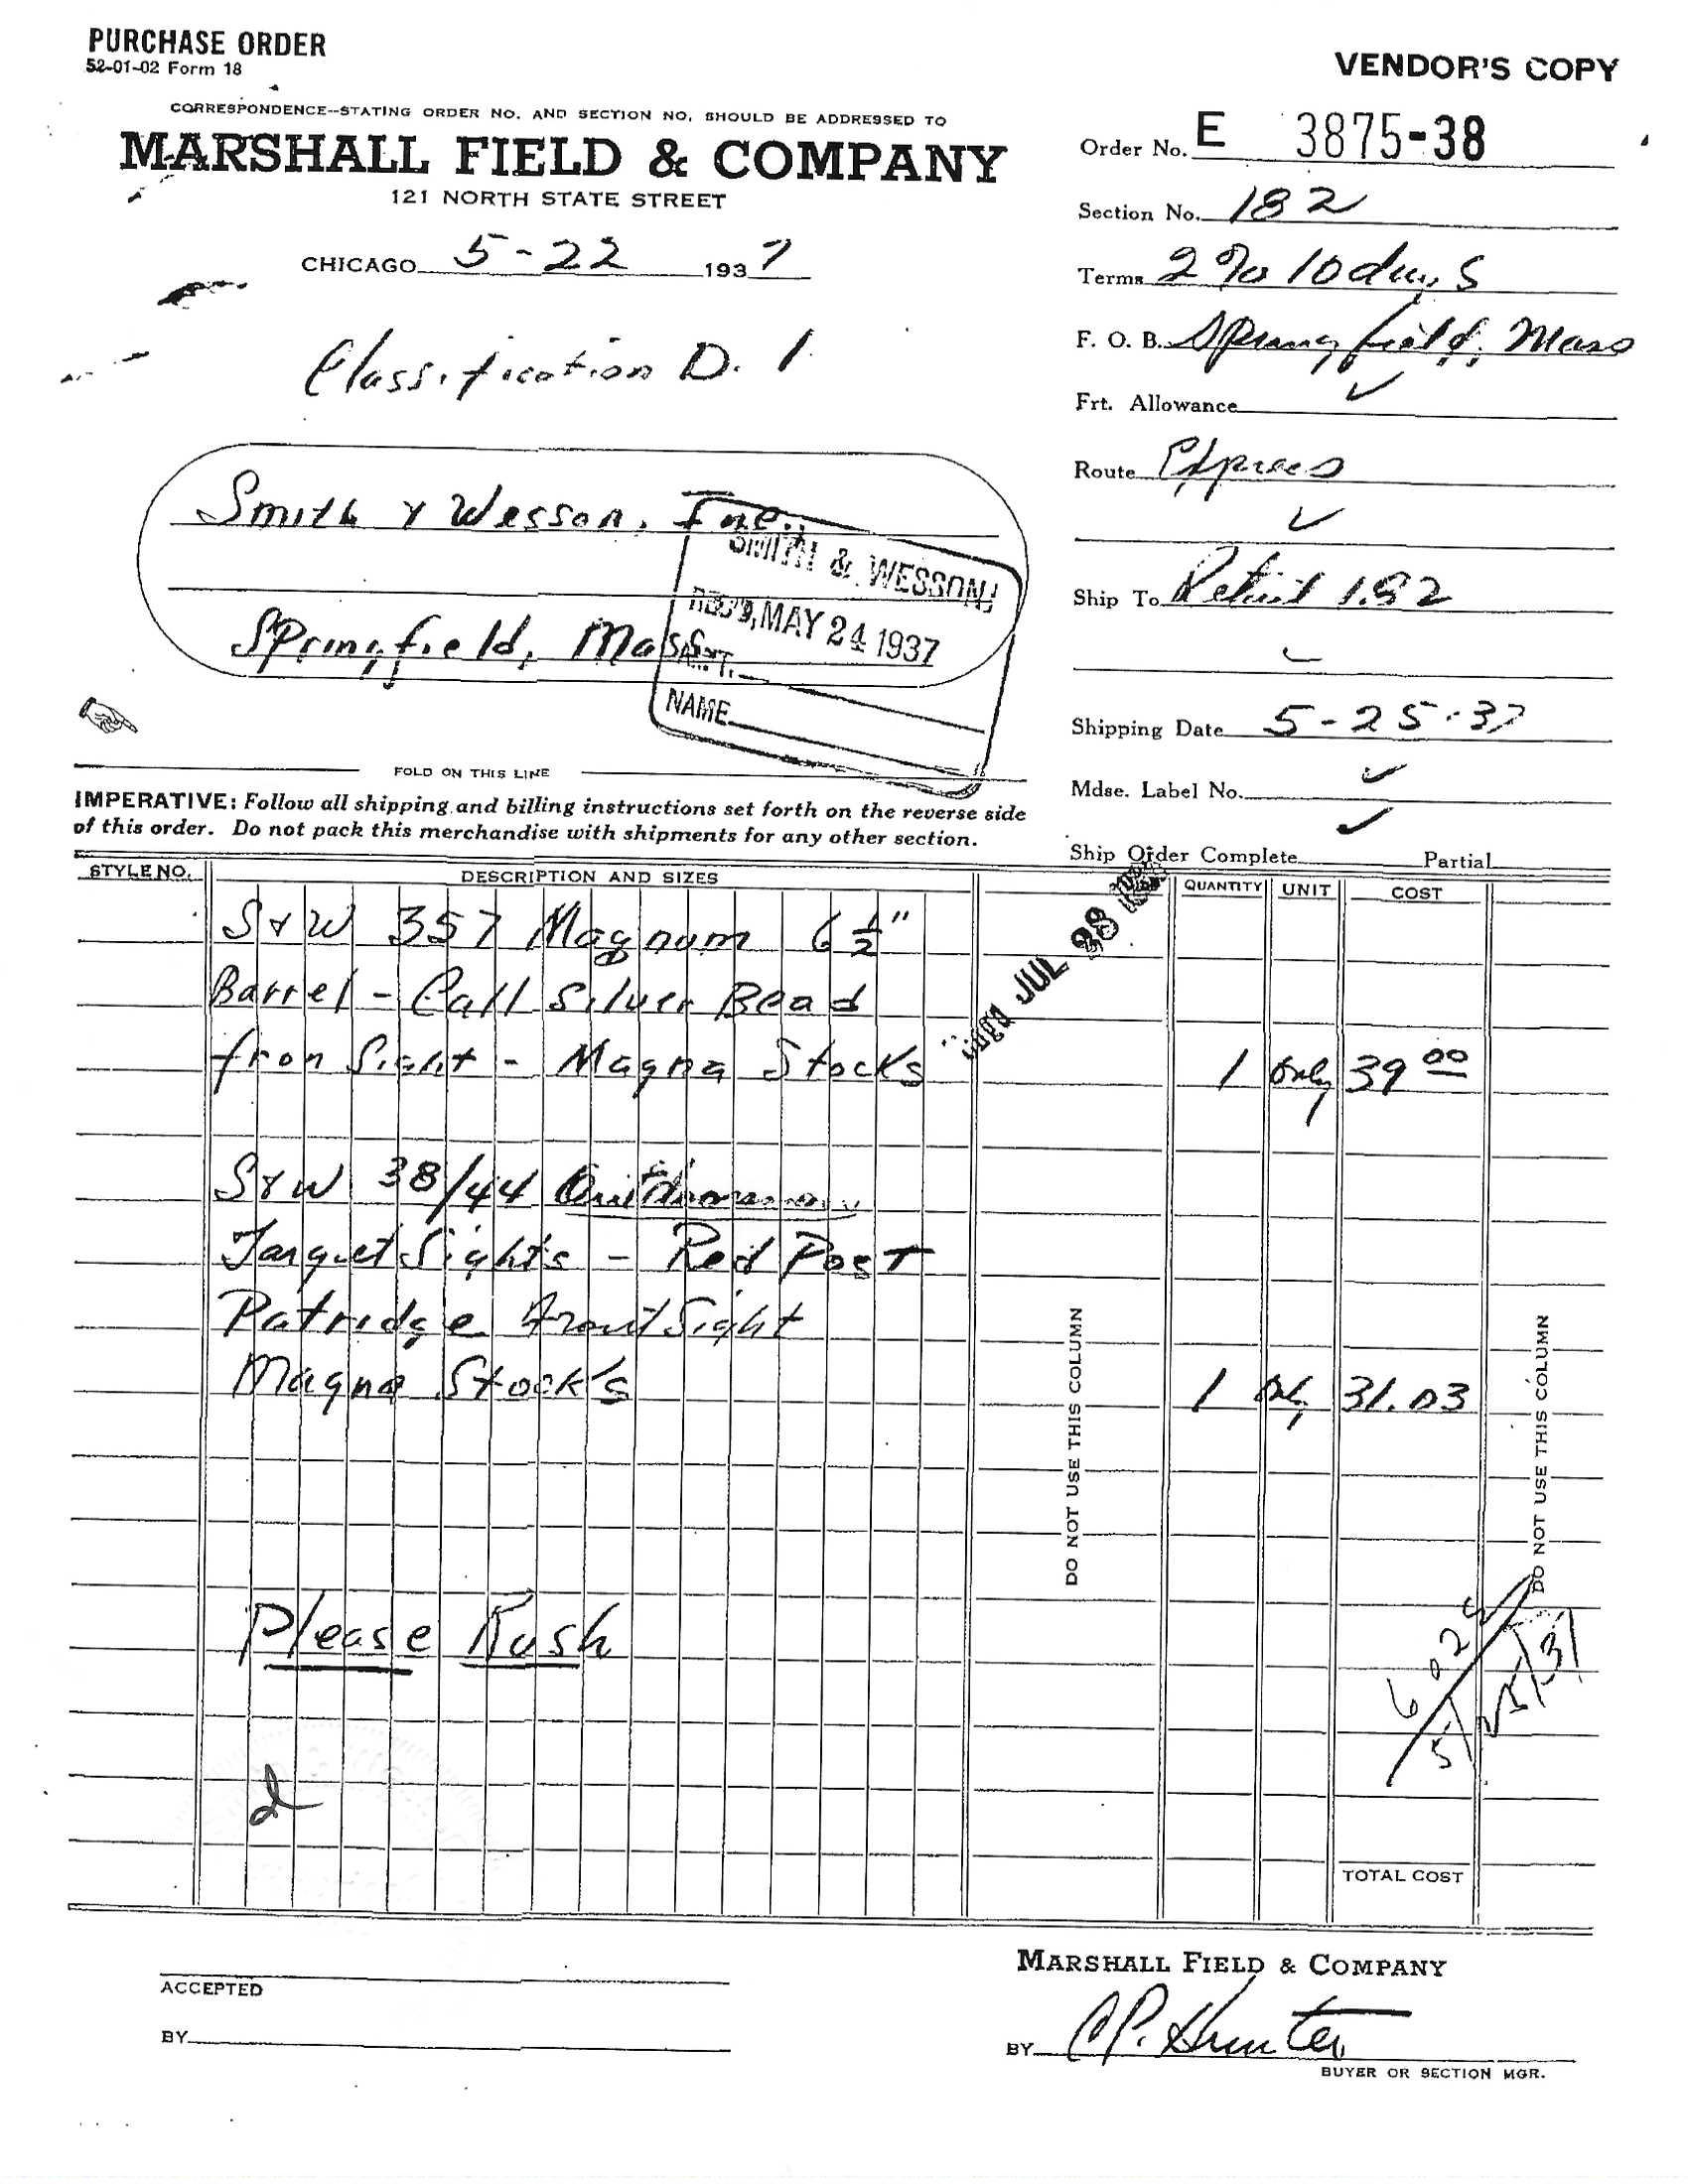 PURCHASE ORDER
52-01-02 Form 18
VENDOR'S COPY
CORRESPONDENCE--STATING ORDER NO. AND SECTION NO. SHOULD BE ADDRESSED TO
MARSHALL FIELD & COMPANY
121 NORTH STATE STREET
CHICAGO 5-22 1937
Classification D. 1
Order No. E 3875-38
Section No. 182
Terms 2% 10 days
F. O. B. Springfield, Mass
Frt. Allowance
Route Express
Ship To Retail 182
Shipping Date 5-25-37
Mdse. Label No.
Ship Order Complete Partial
Smith & Wesson, Inc.
Springfield, Mass
SMITH & WESSON
REC'D, MAY 24 1937
NAME
FOLD ON THIS LINE
IMPERATIVE: Follow all shipping and billing instructions set forth on the reverse side
of this order. Do not pack this merchandise with shipments for any other section.
STYLE NO. DESCRIPTION AND SIZES QUANTITY UNIT COST
S & W 357 Magnum 6 1/2"
Barrel - Call Silver Bead
fron Sight - Magna Stocks 1 only 39 00
JUL 28
S & W 38/44 Outdoorsman
Target Sights - Red Post
Patridge Front Sight
Magna Stocks 1 only 31.03
DO NOT USE THIS COLUMN
DO NOT USE THIS COLUMN
Please Rush
TOTAL COST
ACCEPTED
BY
MARSHALL FIELD & COMPANY
BY C.P. Hunter
BUYER OR SECTION MGR.